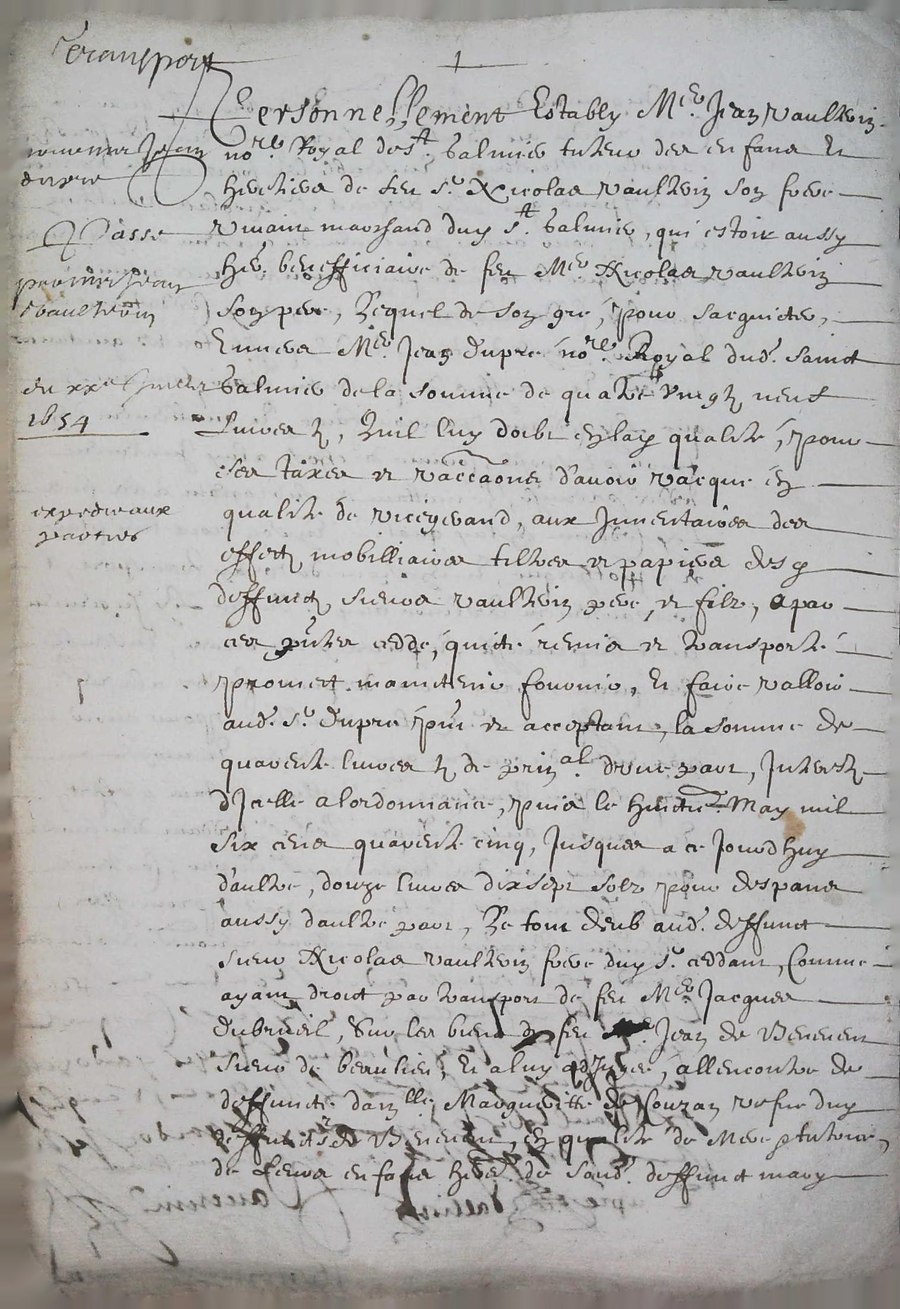 Transport
1
Personnellement Estably Me. Jean Vaultrin
nore. Royal de St. Galmier tuteur des enfans et
heretiers de feu sr. Nicolas Vaultrin son frere
vivaint marchand duy St. Galmier, qui estoit aussy
her. benefficiaire de feu Me. Nicolas Vaultrin
son pere, Lequel de son gré, pour sacquicter,
Envers Me. Jean Dupré nore. Royal dud. Sainct
Galmier de la somme de quatre vingt neuf
Livres tz, Quil luy doibt en lad qualité, pour
ses taxes et vaccaons davoir vacqué en
qualité de vicegerand, aux Inventaires des
effectz mobilliaires tiltres et papiers desd
deffunctz sieurs Vaultrin pere, et filz, a par
ces pntes ceddé, quicté remis et transporté
promect maintenir fournir, et faire valloir
aud. sr. Dupré pnt et acceptant, la somme de
quarente livres tz de prinal. dune part, Interestz
dIcelle a lordonnance, puis le huictie. May mil
six cens quarente cinq, Jusques a ce Jourdhuy
daultre, douze livres dix sept solz pour despans
aussy daultre part, Le tout deub aud. deffunct
sieur Nicolas Vaultrin frere duy sr. ceddant, Comme
ayant droict par transport de feu Me. Jacques
Dubrueil, sur les biens de feu Jean de
sieur de beaulieu, Et a luy adJugée, allencontre de
deffuncte damlle. Margueritte de Couzan vefve duy
deffunct sr de en qualité de Mere tutrice,
de leurs enfans here. de sond. deffunct mary
Me Jean
dupré
Passé
par Me Jean
Vaultrin
du xxe Juillet
1654
expedié aux
parties